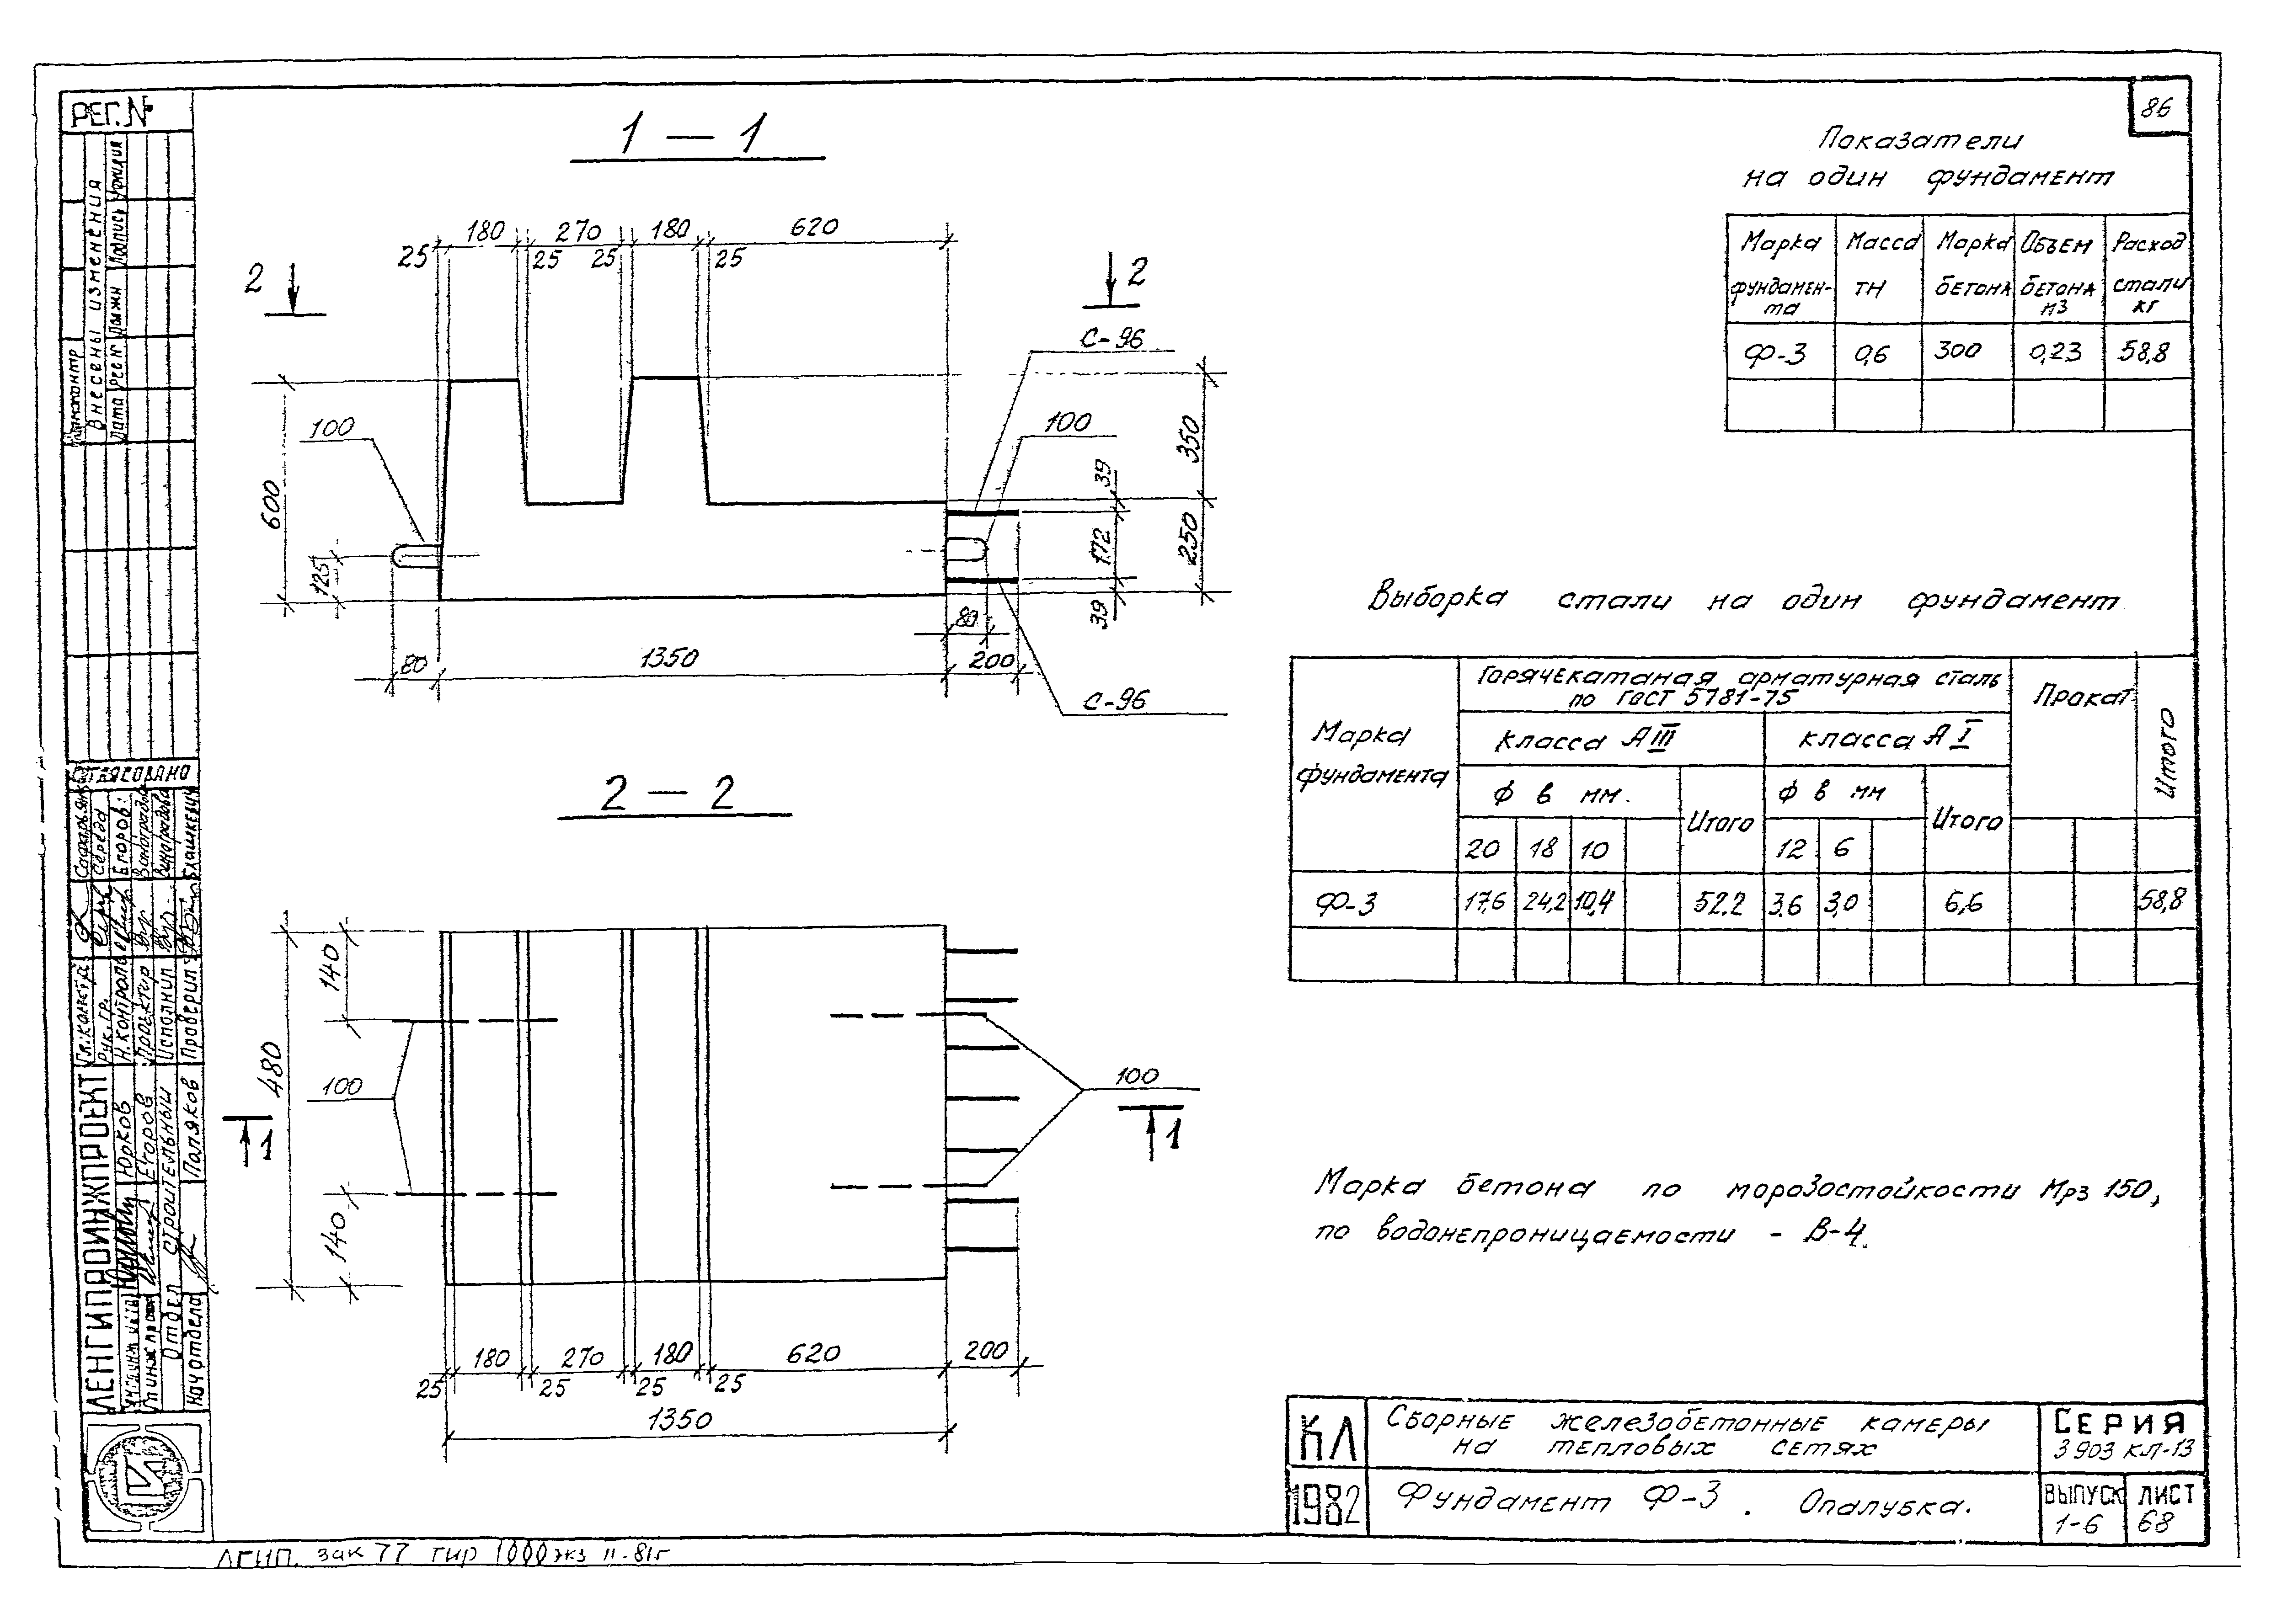 86
РЕГ.№
1 – 1
180 270 180 620
25 25 25 25
2 2
С-96
100 100
600
125
350
39
172
250
39
80
80 1350 200
С-96
2 – 2
140
480
100 100
1 1
140
180 270 180 620 200
25 25 25 25
1350
Показатели
на один фундамент
Марка фундамен-та
Масса тн
Марка бетона
Объем бетона м3
Расход стали кг
Ф-3 0,6 300 0,23 58,8
Выборка стали на один фундамент
Марка фундамента
Горячекатаная арматурная сталь
по ГОСТ 5781-75
Прокат
Итого
класса АIII класса АI
Ф в мм. Итого Ф в мм Итого
20 18 10 12 6
Ф-3 17,6 24,2 10,4 52.2 3,6 3,0 6,6 58,8
Марка бетона по морозостойкости Мрз 150,
по водонепроницаемости - В-4.
КЛ
1982
Сборные железобетонные камеры
на тепловых сетях
Фундамент Ф-3. Опалубка.
СЕРИЯ
3 903 КЛ-13
ВЫПУСК
1-6
ЛИСТ
68
Внесены изменения
Дата Рег.№ Должн Подпись Фамилия
Согласовано
Середа
Егоров
Виноградова
Гл.констр.
Рук. гр.
Н.контроль
Проектир
Исполнил
Проверил
ЛЕНГИПРОИНЖПРОЕКТ
Юрков
Егоров
Отдел строительный
Начотдела Поляков
ЛГИП. зак 77 тир 1000 экз II-81г